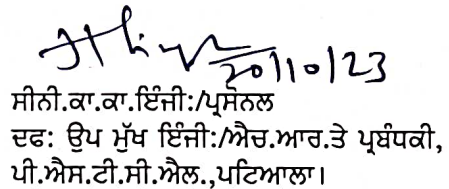 20/10/23
ਸੀਨੀ.ਕਾ.ਕਾ.ਇੰਜੀ:/ਪ੍ਰਸੋਨਲ
ਦਫ: ਉਪ ਮੁੱਖ ਇੰਜੀ:/ਐਚ.ਆਰ.ਤੇ ਪ੍ਰਬੰਧਕੀ,
ਪੀ.ਐਸ.ਟੀ.ਸੀ.ਐਲ.,ਪਟਿਆਲਾ।